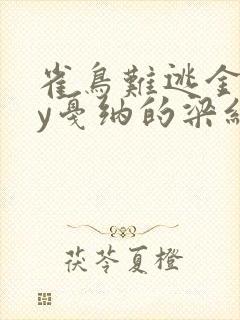 雀鳥難逃金
y戛纳的梁紅
茯苓夏橙